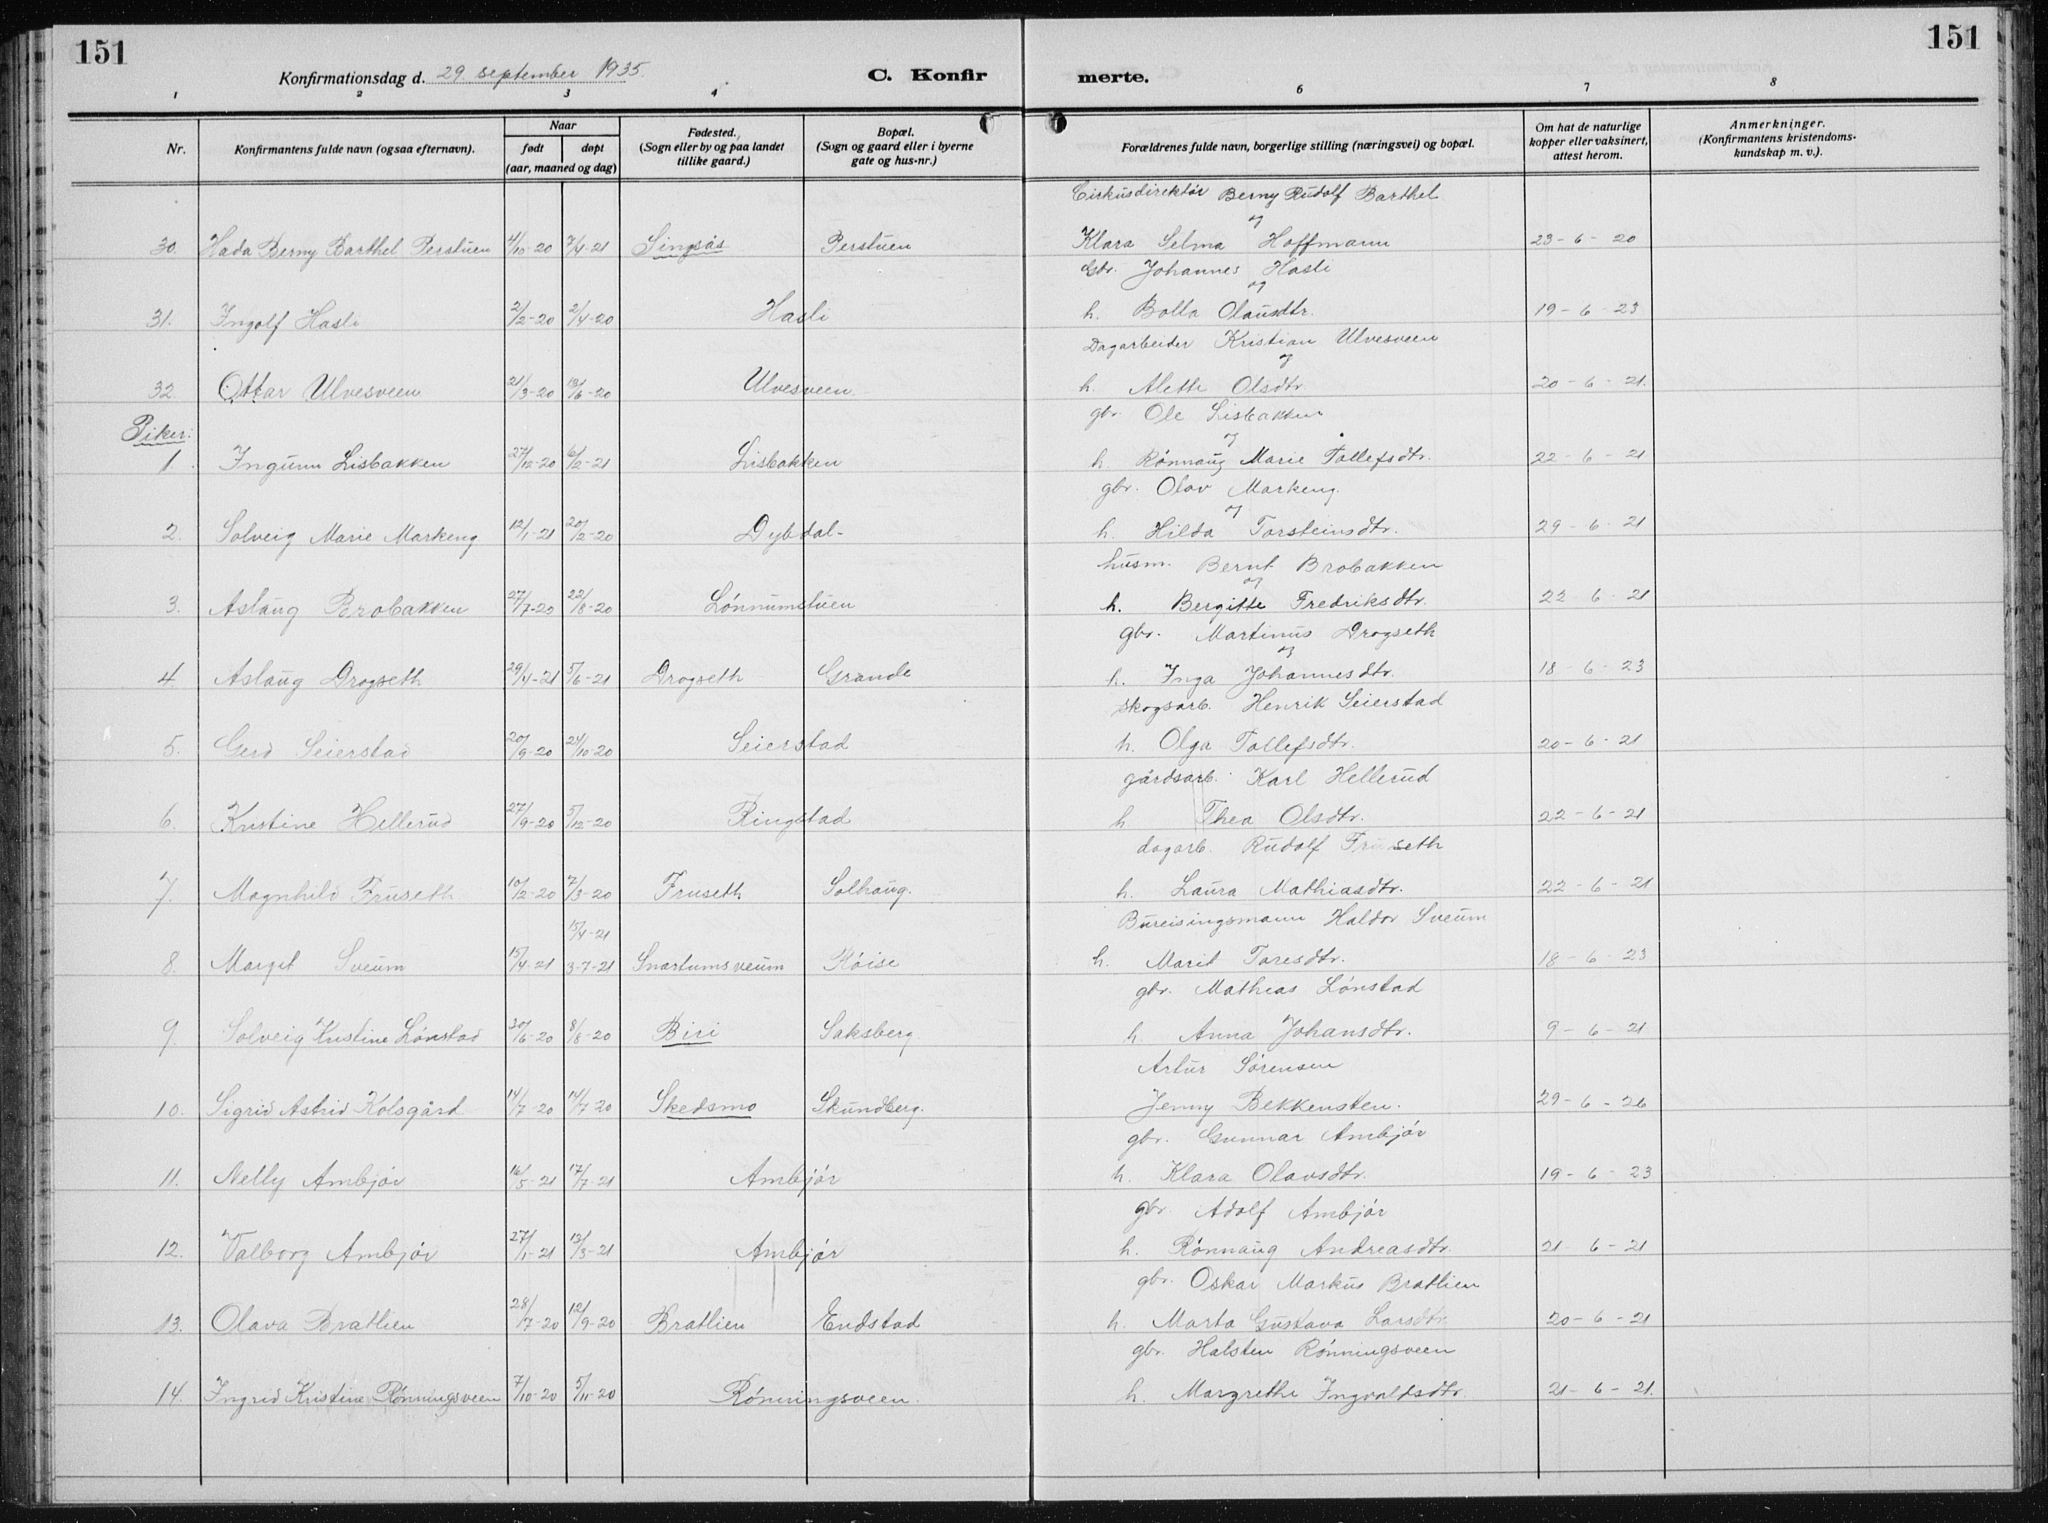 151
151
Konfirmationsdag d. 29. september 1935.
C. Konfir
merte.
1 2 3 4 6 7 8
Nr.
Konfirmantens fulde navn (ogsaa efternavn).
Naar
født døpt
(aar, maaned og dag)
Fødested.
(Sogn eller by og paa landet
tillike gaard.)
Bopæl.
(Sogn og gaard eller i byerne
gate og hus-nr.)
Forældrenes fulde navn, borgerlige stilling (næringsvei) og bopæl.
Om hat de naturlige
kopper eller vaksinert,
attest herom.
Anmerkninger.
(Konfirmantens kristendoms-
kundskap m. v.).
Cirkusdirektör Berny Rudolf Barthel
og
30. Hada Berny Barthel Perstuen 4/10-20 7/4-21 Singsås Perstuen Klara Selma Hoffmann 23-6-20
Gbr. Johannes Hasli
og
31. Ingolf Hasli 2/2-20 2/4-20 Hasli h. Bolla Olausdtr. 19-6-23
Dagarbeider Kristian Ulvesveen
og
32 Ottar Ulvesveen 21/3-20 13/6-20 Ulvesveen h. Alette Olsdtr. 20-6-21.
Piker:
gbr. Ole Lisbakken
og
1. Ingunn Lisbakken 27/12-20 6/2-21 Lisbakken h. Rønnaug Marie Tollefsdtr. 22-6-21
gbr. Olav Markeng.
og
2. Solveig Marie Markeng 12/1-21 20/2-20 Dybdal- h. Hilda Torsteinsdtr. 29-6-21
husm. Bernt Brobakken
og
3. Aslaug Brobakken 27/7-20 22/8-20 Lønnumstuen h. Bergitte Fredriksdtr. 22-6-21
gbr. Martinus Drogseth
og
4. Aslaug Drogseth 29/4-21 5/6-21 Drogseth Grande h. Inga Johannesdtr. 18-6-23
skogsarb. Henrik Seierstad
5. Gerd Seierstad 20/9-20 24/10-20 Seierstad h. Olga Tollefsdtr. 20-6-21
gårdsarb. Karl Hellerud
6. Kristine Hellerud 27/9-20 5/12-20 Ringstad h Thea Olsdtr. 22-6-21
dagarb. Rudolf Fruseth
7. Magnhild Fruseth 10/2-20 7/3-20 Fruseth Solhaug. h. Laura Mathiasdtr. 22-6-21
15/4-21
Bureisingsmann Haldor Sveum
8. Margit Sveum 15/4-21 3-7-21 Snartumsveum Röise h. Marit Toresdtr. 18-6-23
gbr. Mathias Lønstad
9. Solveig Kristine Lønstad 30/6-20 8/8-20 Biri Saksberg. h. Anna Johansdtr. 9-6-21
Artur Sørensen
10. Sigrid Astrid Kolsgård 14/7-20 14/7-20 Skedsmo Skundberg. Jenny Bekkensten. 29-6-26
gbr. Gunnar Ambjör
11. Nelly Ambjör 16/5-21 17/7-21 Ambjör h. Klara Olavsdtr. 19-6-23
gbr. Adolf Ambjör
12. Valborg Ambjör 27/1-21 13/3-21 Ambjör h. Rønnaug Andreasdtr. 21-6-21
gbr. Oskar Markus Bratlien
13. Olava Bratlien 28/7-20 12/9-20 Bratlien Endstad h. Marta Gustava Larsdtr. 20-6-21
gbr. Halsten Rönningsveen
14. Ingrid Kristine Rönningsveen 7/10-20 5/11-20 Rönningsveen. h. Margrethe Ingvaldsdtr. 21-6-21.